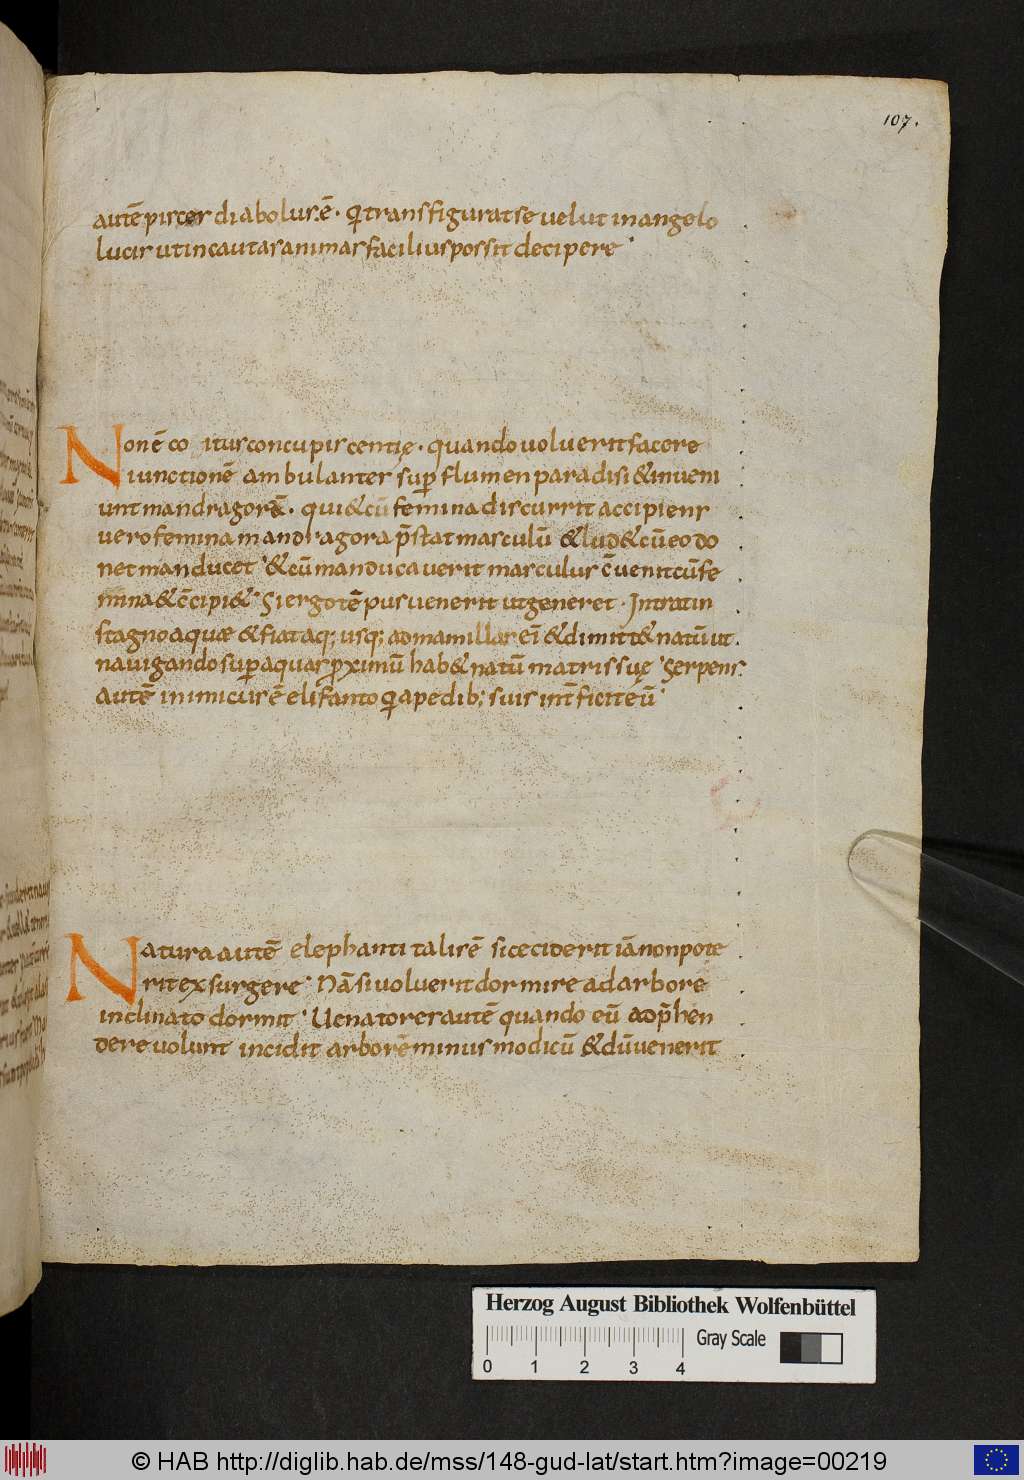 107.
autē piscis diabolus ē · q transfigurat se velut in angelo
lucis ut incautas animas facilius possit decipere
Non ē co itus concupiscentię · quando voluerit facere
iunctionē ambulanter sup flumen paradisi & inveni
unt mandragorā · qui & cū femina discurrit accipiens
vero femina mandragora p̄stat masculū & lud& cū eo do
nec manducet & cū manducaverit masculus c̄venit cū fe
mina & c̄cipi& Si ergo tēpus venerit ut generet · Intrat in
stagno aquæ & fiat aq; usq; ad mamillas ei & dimitt& natū ut
navigando sup aquas proximū hab& natū matris suę Serpens
autē inimicus ē elifanto q a pedib; suis int̄ficit eū
Natura autē elephanti talis ē si ceciderit iā non pote
rit exsurgere Nā si voluerit dormire ad arbore
inclinato dormit Venatores autē quando eū adp̄hen
dere volunt incidit arborē minus modicū & dū venerit
Herzog August Bibliothek Wolfenbüttel
Gray Scale
0 1 2 3 4
© HAB http://diglib.hab.de/mss/148-gud-lat/start.htm?image=00219